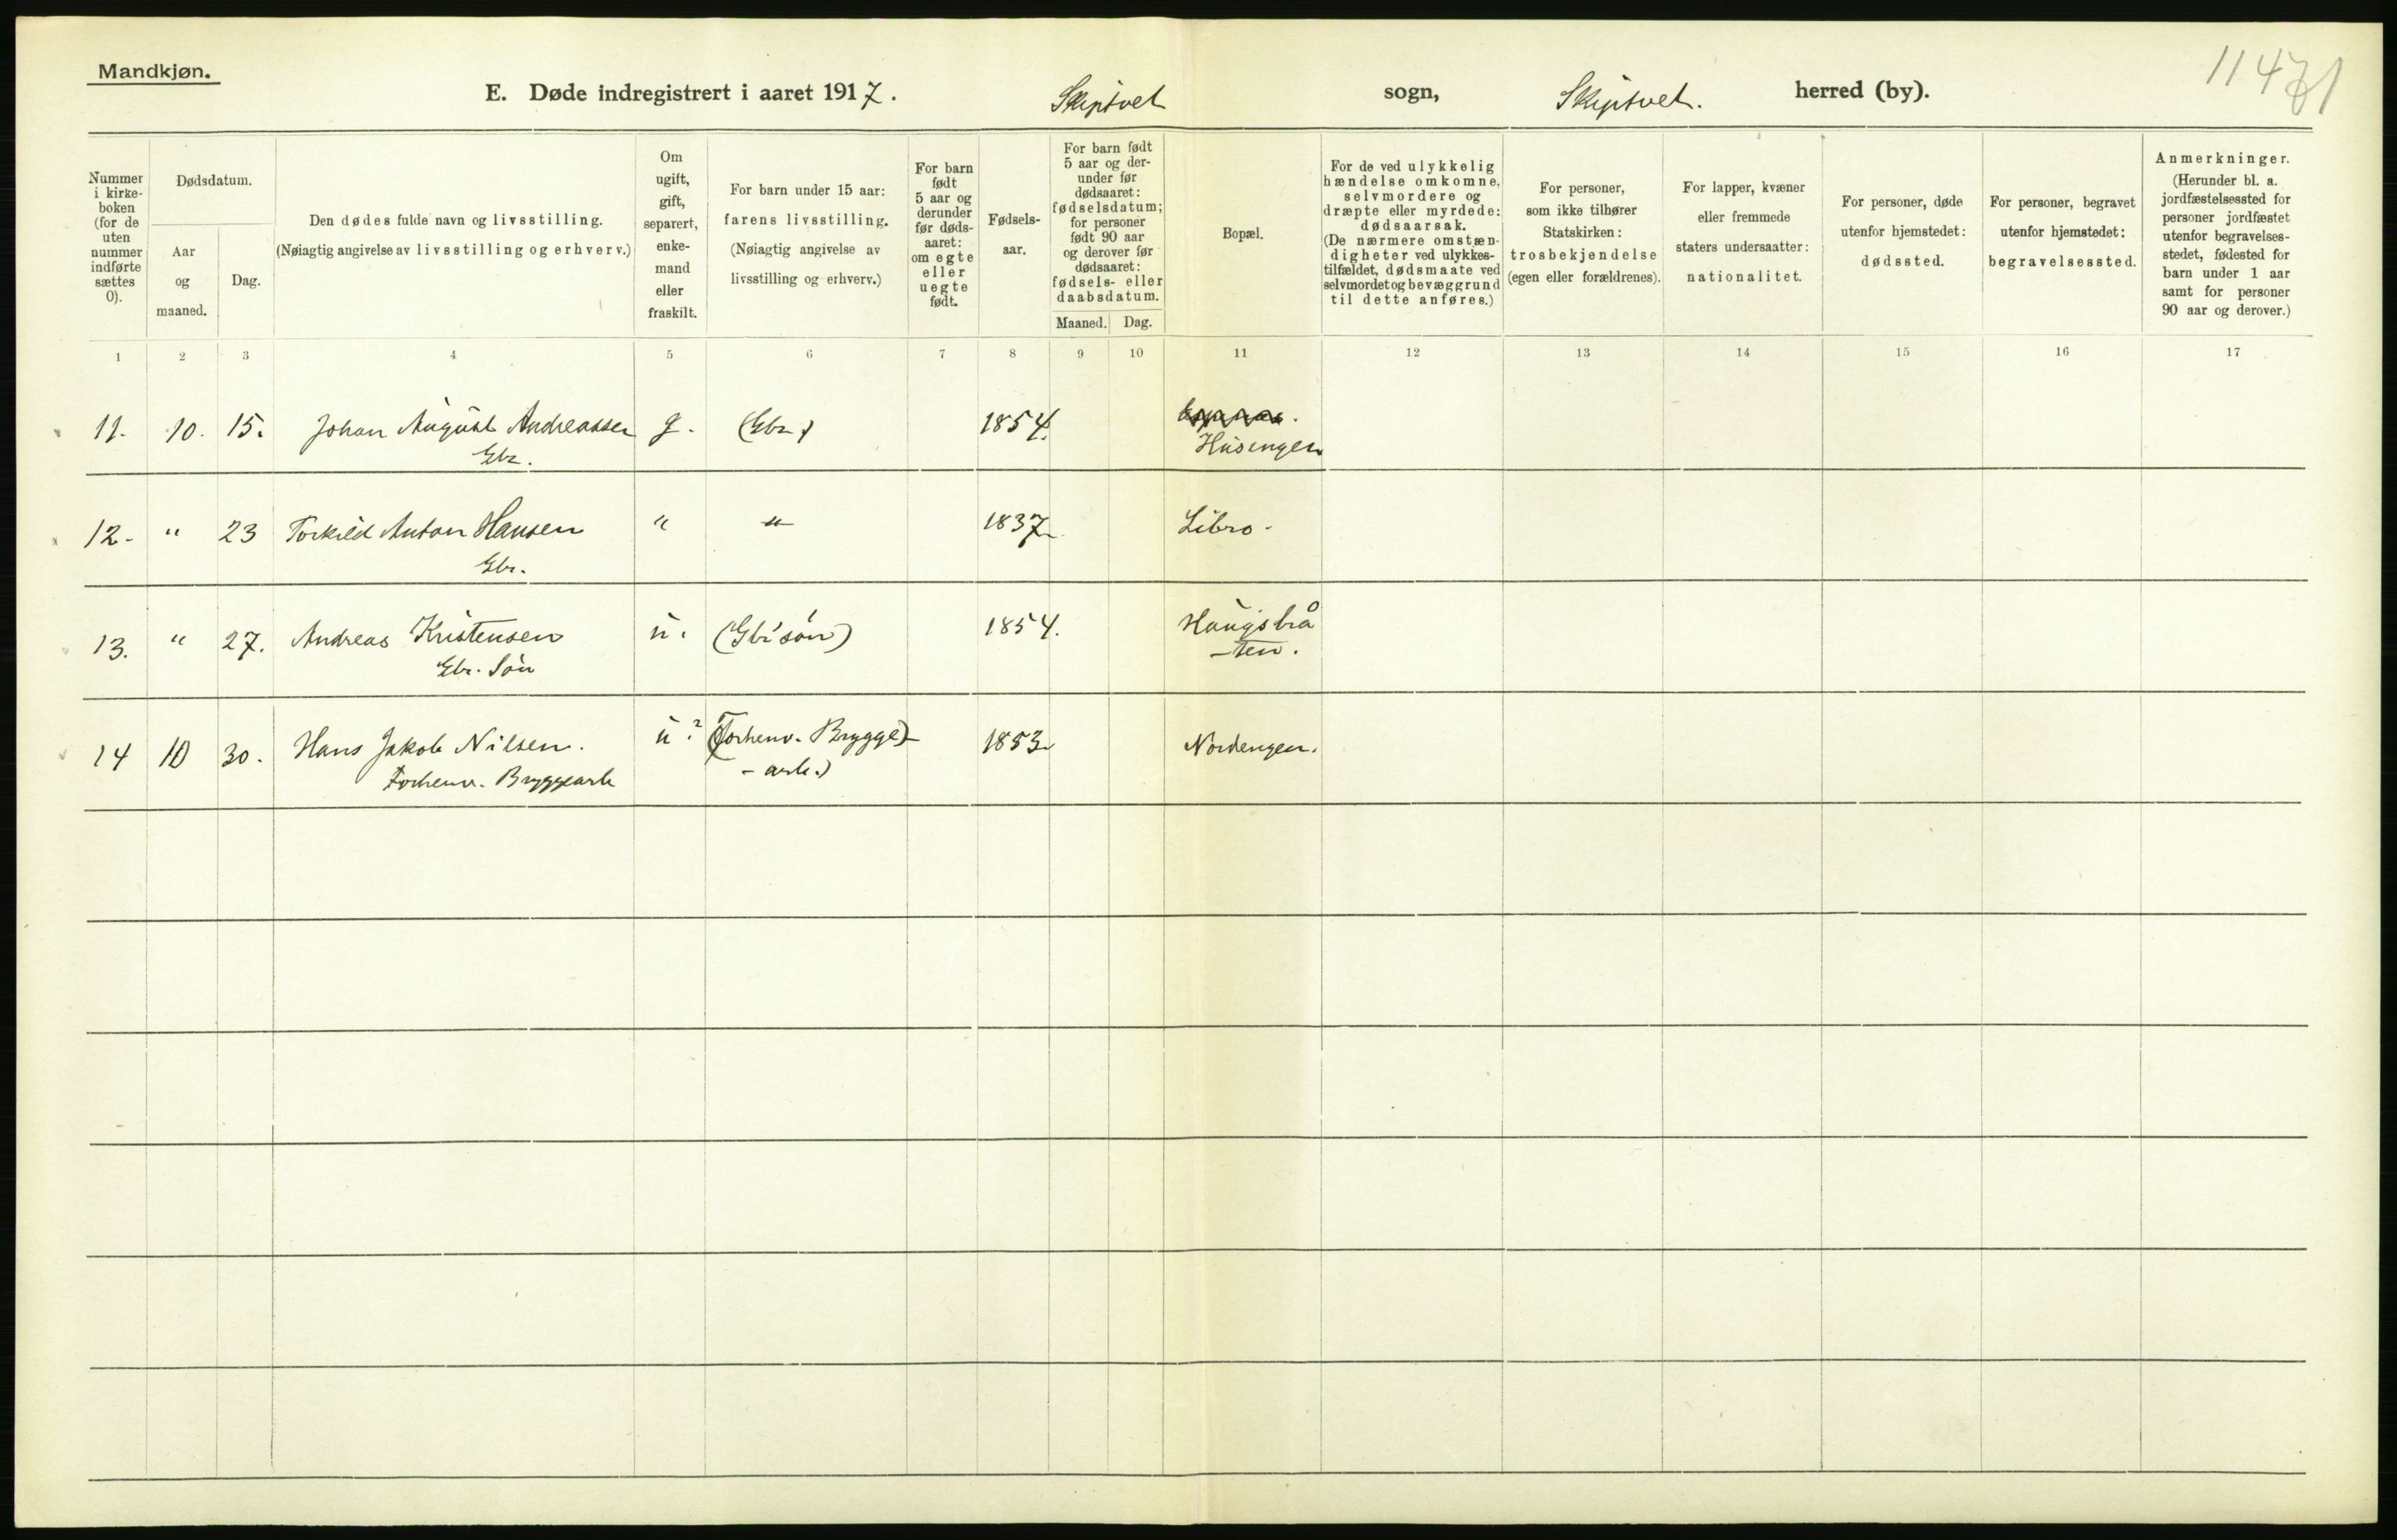 Mandkjøn.
E. Døde indregistrert i aaret 1917. Skiptvet sogn, Skiptvet. herred (by).
Nummer i kirke-boken (for de uten nummer indførte sættes 0).
Dødsdatum.
Aar og maaned.
Dag.
Den dødes fulde navn og livsstilling.
(Nøiagtig angivelse av livsstilling og erhverv.)
Om ugift, gift, separert, enke-mand eller fraskilt.
For barn under 15 aar: farens livsstilling. (Nøiagtig angivelse av livsstilling og erhverv.)
For barn født 5 aar og derunder før døds-aaret: om egte eller uegte født.
Fødsels-aar.
For barn født 5 aar og der-under før dødsaaret: fødselsdatum; for personer født 90 aar og derover før dødsaaret: fødsels- eller daabsdatum.
Maaned. Dag.
Bopæl.
For de ved ulykkelig hændelse omkomne, selvmordere og dræpte eller myrdede: dødsaarsak. (De nærmere omstæn-digheter ved ulykkes-tilfældet, dødsmaate ved selvmordet og bevæggrund til dette anføres.)
For personer, som ikke tilhører Statskirken: trosbekjendelse (egen eller forældrenes).
For lapper, kvæner eller fremmede staters undersaatter: nationalitet.
For personer, døde utenfor hjemstedet: dødssted.
For personer, begravet utenfor hjemstedet: begravelsessted.
Anmerkninger. (Herunder bl. a. jordfæstelsessted for personer jordfæstet utenfor begravelses-stedet, fødested for barn under 1 aar samt for personer 90 aar og derover.)
1 2 3 4 5 6 7 8 9 10 11 12 13 14 15 16 17
11. 10. 15. Johan August Andreassen g. (Gbr.) 1854.
Gbr. Husengen
12. " 23 Torkild Anton Hansen " " 1837. Libro.
Gbr.
13. " 27. Andreas Kristensen u. (Gb. søn) 1854. Haugsbrå
Gbr. Søn -ten.
14 10 30. Hans Jakob Nilsen. u? (Forhenv. Brygge) 1853. Nordengen.
Forhenv. Bryggearb -arb.)